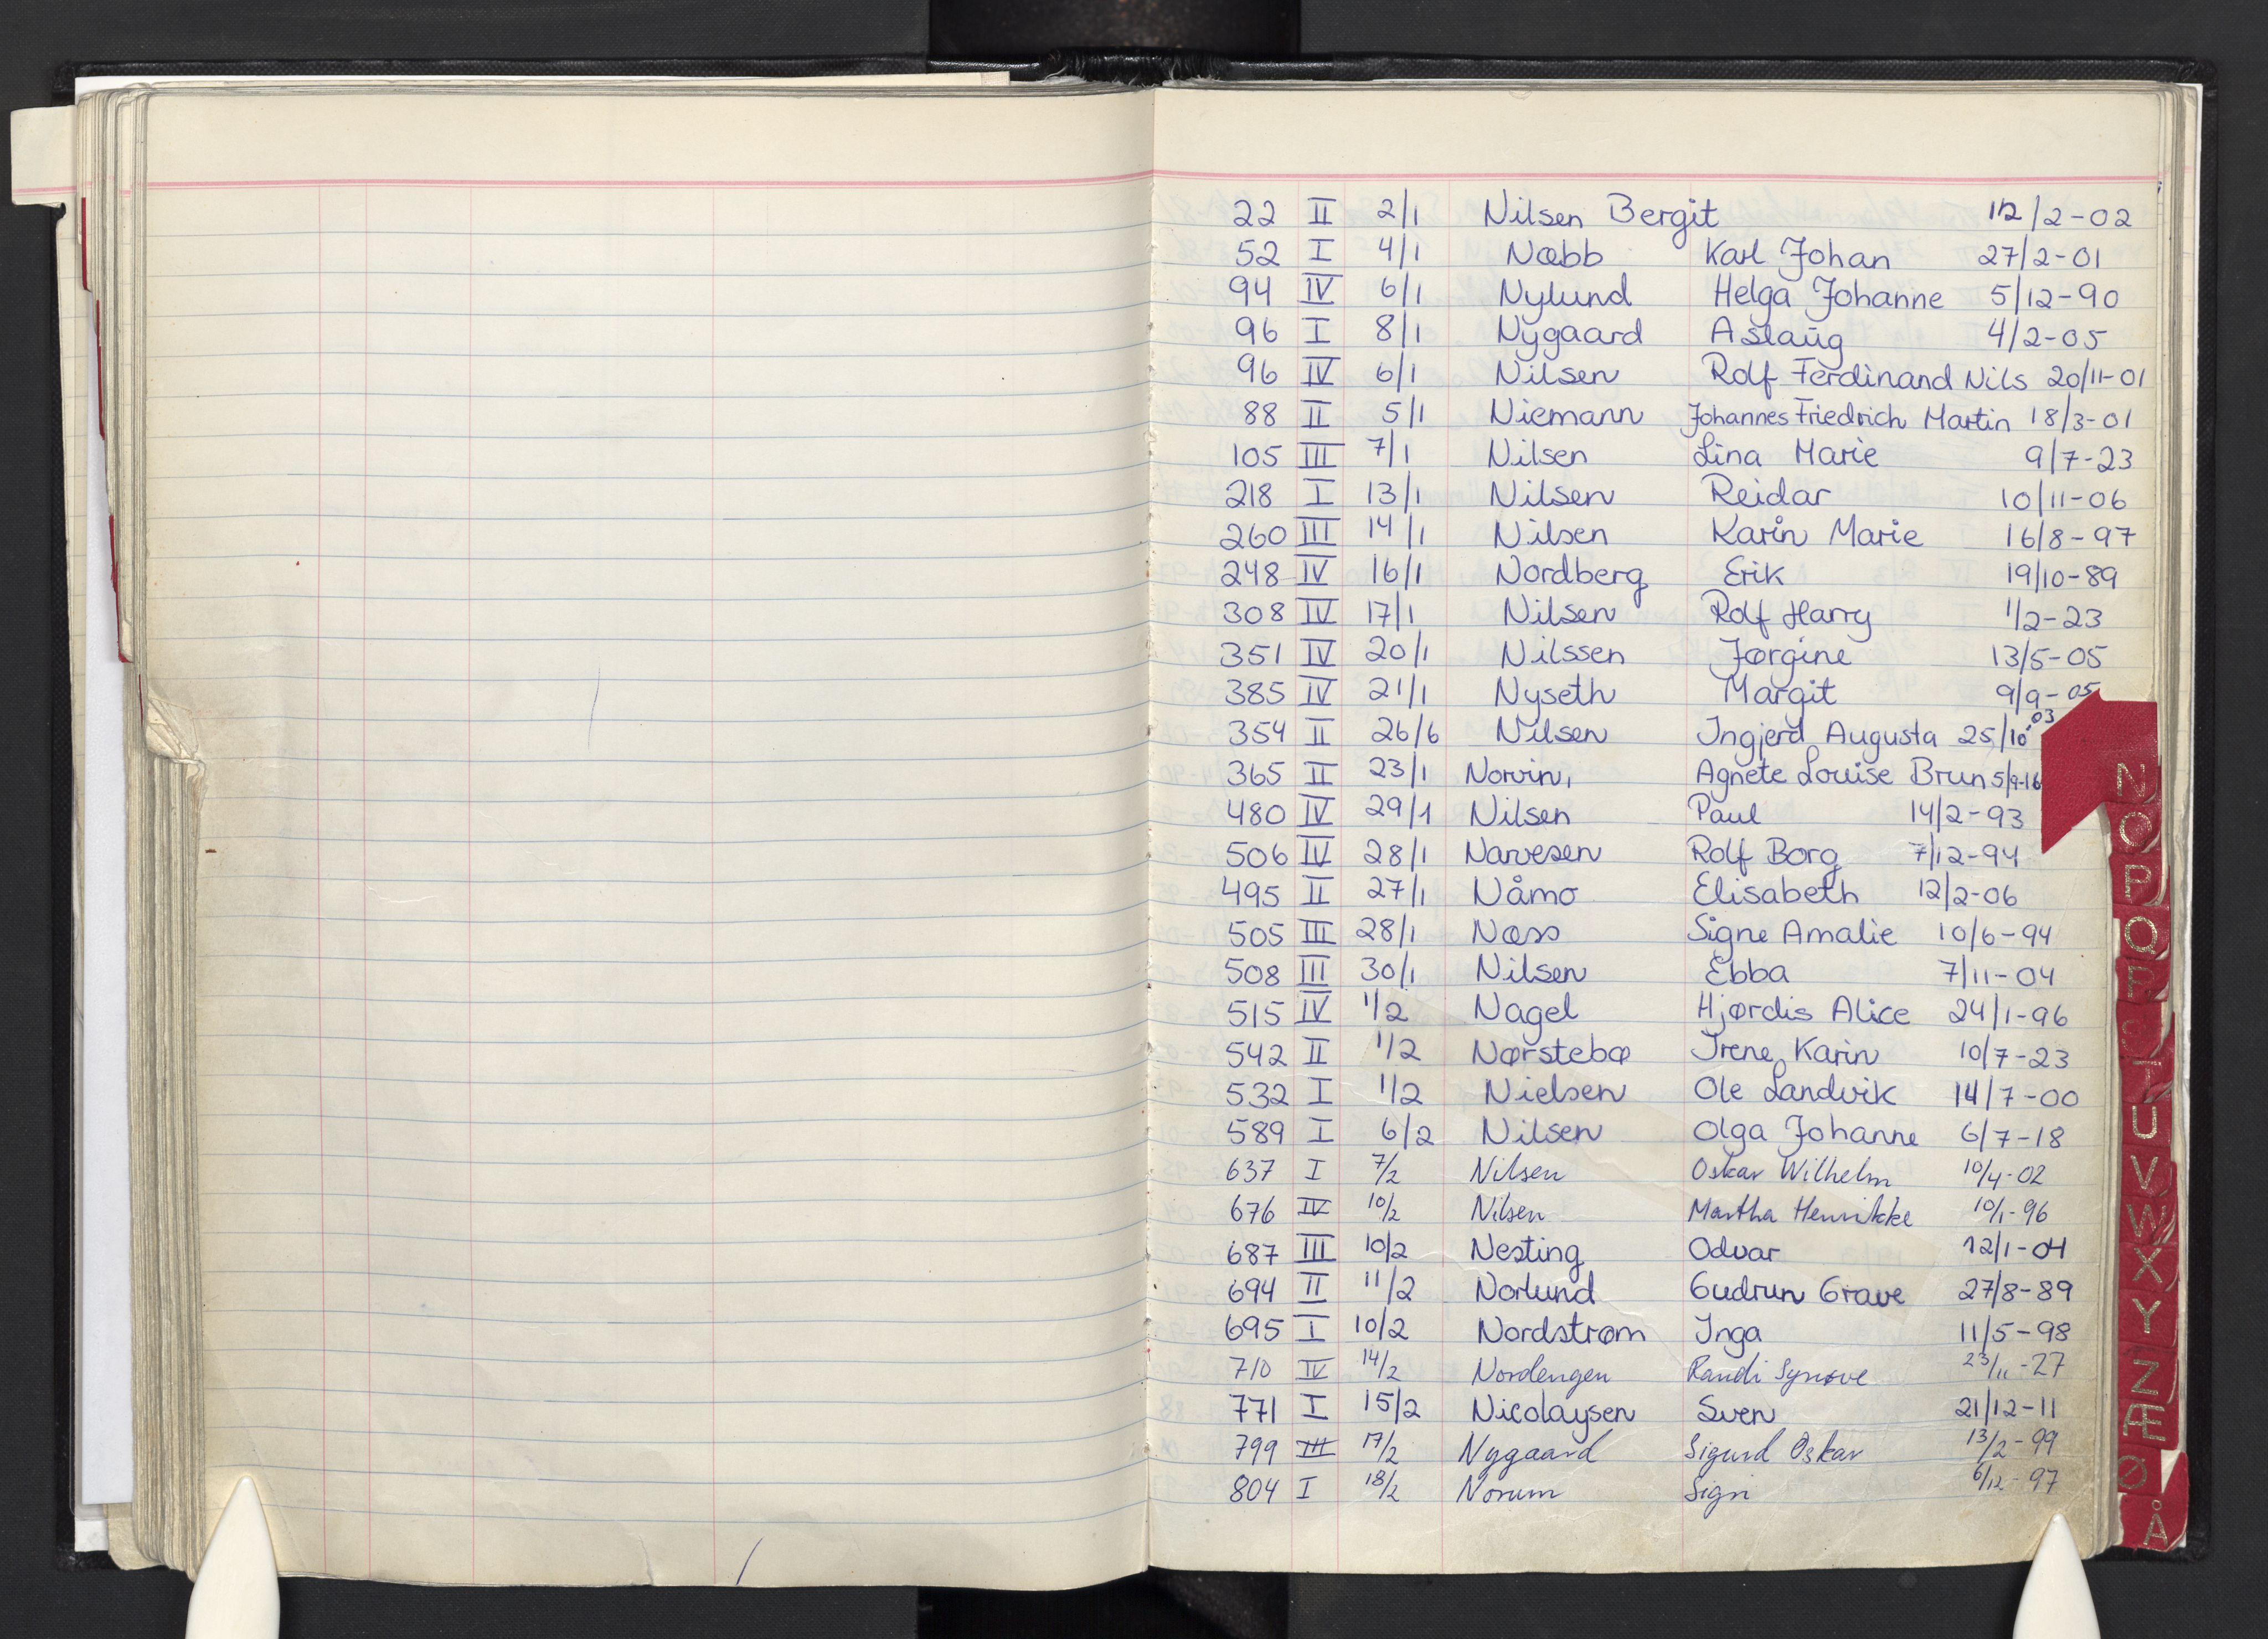 22 II 2/1 Nilsen Bergit 12/2-02
52 I 4/1 Næbb Karl Johan 27/2-01
94 IV 6/1 Nylund Helga Johanne 5/12-90
96 I 8/1 Nygaard Aslaug 4/2-05
96 IV 6/1 Nilsen Rolf Ferdinand Nils 20/11-01
88 II 5/1 Niemann Johannes Friedrich Martin 18/3-01
105 III 7/1 Nilsen Lina Marie 9/7-23
218 I 13/1 Nilsen Reidar 10/11-06
260 III 14/1 Nilsen Karin Marie 16/8-97
248 IV 16/1 Nordberg Erik 19/10-89
308 IV 17/1 Nilsen Rolf Harry 1/2-23
351 IV 20/1 Nilssen Jørgine 13/5-05
385 IV 21/1 Nyseth Margit 9/9-05
354 II 26/6 Nilsen Ingjerd Augusta 25/10-03
365 II 23/1 Norvin, Agnete Louise Brun 5/9-16
480 IV 29/1 Nilsen Paul 14/2-93
506 IV 28/1 Narvesen Rolf Borg 7/12-94
495 II 27/1 Nåmo Elisabeth 12/2-06
505 III 28/1 Næss Signe Amalie 10/6-94
508 III 30/1 Nilsen Ebba 7/11-04
515 IV 1/2 Nagel Hjørdis Alice 24/1-96
542 II 1/2 Nørstebø Irene Karin 10/7-23
532 I 1/2 Nielsen Ole Landvik 14/7-00
589 I 6/2 Nilsen Olga Johanne 6/7-18
637 I 7/2 Nilsen Oskar Wilhelm 10/4-02
676 IV 10/2 Nilsen Martha Henrikke 10/1-96
687 III 10/2 Nesting Odvar 12/1-04
694 II 11/2 Norlund Gudrun Grave 27/8-89
695 I 10/2 Nordstrøm Inga 11/5-98
710 IV 14/2 Nordengen Randi Synøve 23/11-27
771 I 15/2 Nicolaysen Sven 21/12-11
799 III 17/2 Nygaard Sigurd Oskar 13/2-99
804 I 18/2 Norum Sign 6/12-97
N
O
P
Q
R
S
T
U
V
W
X
Y
Z
Æ
Ø
Å